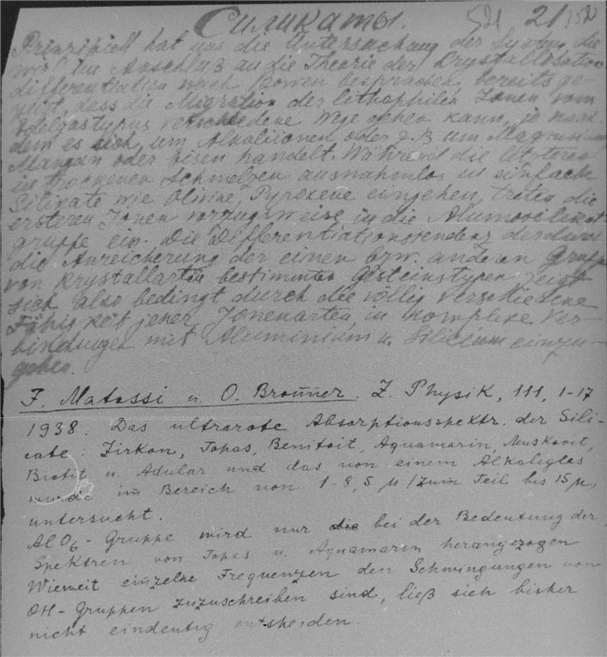 Силикаты.
521 21
Prinzipiell hat uns die Untersuchung der System, die
wir im Anschluß an die Theorie der Krystallisation
differentiation nach Bowen besprachen bereits ge-
zeigt, dass die Migration der lithophilen Jonen vom
Edelgastypus verschiedene Wege gehen kann, je nach
dem es sich um Alkaliionen oder z.B. um Magnesium
Mangan oder Eisen handelt. Während die letzteren
in trockenen Schmelzen ausnahmlos in einfache
Silikate wie Olivine, Pyroxene eingehen, treten die
ersteren Jonen vorzugsweise in die Alumosilikat
gruppe ein. Die Differentiationstendenz der durch
die Anreicherung der einen bzw. anderen Gruppe
von Krystallarten bestimmten Gesteinstypen zeigt
sich also bedingt durch die völlig verschiedene
Fähigkeit jener Jonenarten in komplexe Ver-
bindungen mit Aluminium u. Silicium einzu-
gehen.
F. Matossi u. O. Bronner. Z. Physik, 111, 1-17
1938. Das ultrarote Absorptionsspektr. der Sili-
cate: Zirkon, Topas, Benitoit, Aquamarin, Muskovit,
Biotit u. Adular und das von einem Alkaliglas
wurde im Bereich von 1-8,5 μ /zum Teil bis 15 μ,
untersucht.
AlO6-Gruppe wird nur bei der Bedeutung der
Spektren von Topas u. Aquamarin herangezogen
Wieweit einzelne Frequenzen den Schwingungen von
OH-Gruppen zuzuschreiben sind, ließ sich bisher
nicht eindeutig entscheiden.